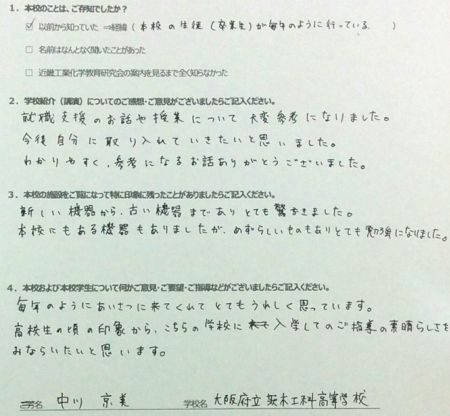 1. 本校のことは、ご存知でしたか?
☑ 以前から知っていた ⇒経緯 (本校の生徒(卒業生)が毎年のように行っている )
□ 名前はなんとなく聞いたことがあった
□ 近畿工業化学教育研究会の案内を見るまで全く知らなかった
2. 学校紹介(講演)についてのご感想・ご意見がございましたらご記入ください。
就職支援のお話や授業について 大変参考になりました。
今後自分に取り入れていきたいと思いました。
わかりやすく、参考になるお話ありがとうございました。
3. 本校の施設をご覧になって特に印象に残ったことがありましたらご記入ください。
新しい機器から、古い機器まであり とても驚きました。
本校にもある機器もありましたが、めずらしいものもありとても勉強になりました。
4. 本校および本校学生について何かご意見・ご要望・ご指導などがございましたらご記入ください。
毎年のようにあいさつに来てくれて とてもうれしく思っています。
高校生の頃の印象から、こちらの学校に 入学してのご指導の素晴らしさを
みならいたいと思います。
ご芳名 中川 京美 学校名 大阪府立 茨木工科高等学校